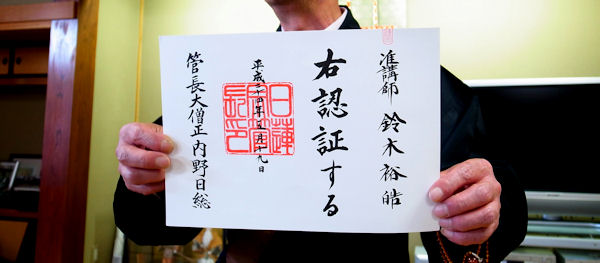 准講師 鈴木裕皓
右認証する
平成二十四年五月十九日
管長大僧正 内野日総